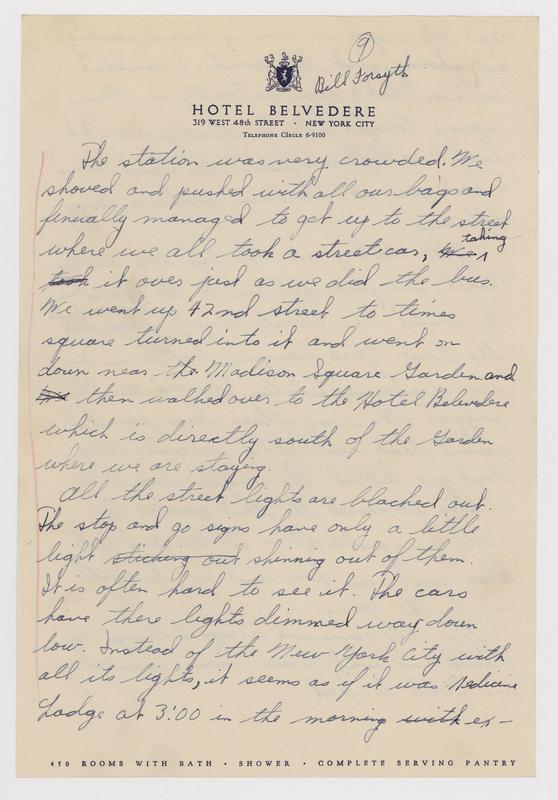 9
Bill Forsyth
HOTEL BELVEDERE
319 WEST 48th STREET · NEW YORK CITY
TELEPHONE CIRCLE 6-9100
The station was very crowded. We
shoved and pushed with all our bags and
finually managed to get up to the street
where we all took a street car, We taking
took it over just as we did the bus.
We went up 42nd street to times
square turned into it and went on
down near the Madison Square Garden and
then walked over to the Hotel Belvedere
which is directly south of the Garden
where we are staying.
All the street lights are blacked out.
The stop and go signs have only a little
light sticking out shinning out of them.
It is often hard to see it. The cars
have there lights dimmed way down
low. Instead of the New York City with
all its lights, it seems as if it was Medicine
Lodge at 3:00 in the morning with ex-
450 ROOMS WITH BATH · SHOWER · COMPLETE SERVING PANTRY